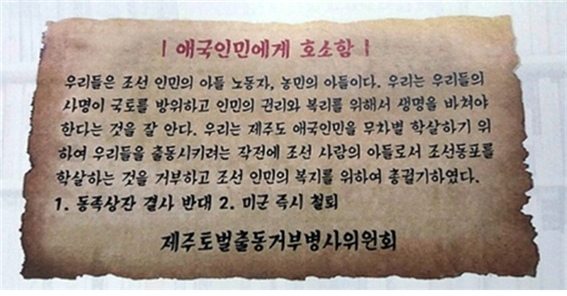 | 애국인민에게 호소함 |
우리들은 조선 인민의 아들 노동자, 농민의 아들이다. 우리는 우리들의
사명이 국토를 방위하고 인민의 권리와 복리를 위해서 생명을 바쳐야
한다는 것을 잘 안다. 우리는 제주도 애국인민을 무차별 학살하기 위
하여 우리들을 출동시키려는 작전에 조선 사람의 아들로서 조선동포를
학살하는 것을 거부하고 조선 인민의 복지를 위하여 총궐기하였다.
1. 동족상잔 결사 반대 2. 미군 즉시 철퇴
제주토벌출동거부병사위원회